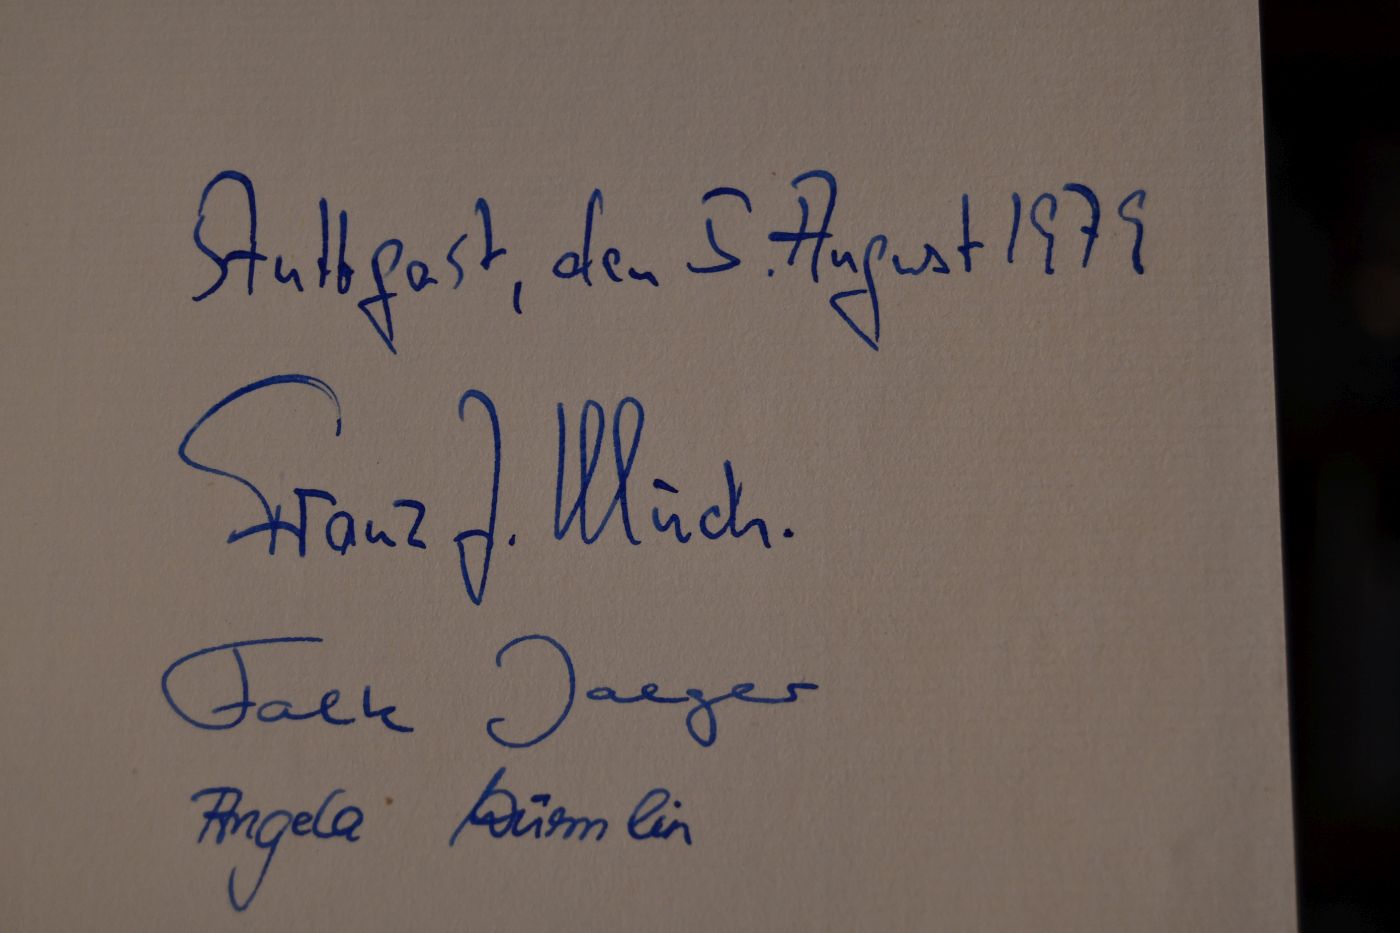 Stuttgart, den 5. August 1979
Franz J. Much.
Falk Jaeger
Angela Würmlin